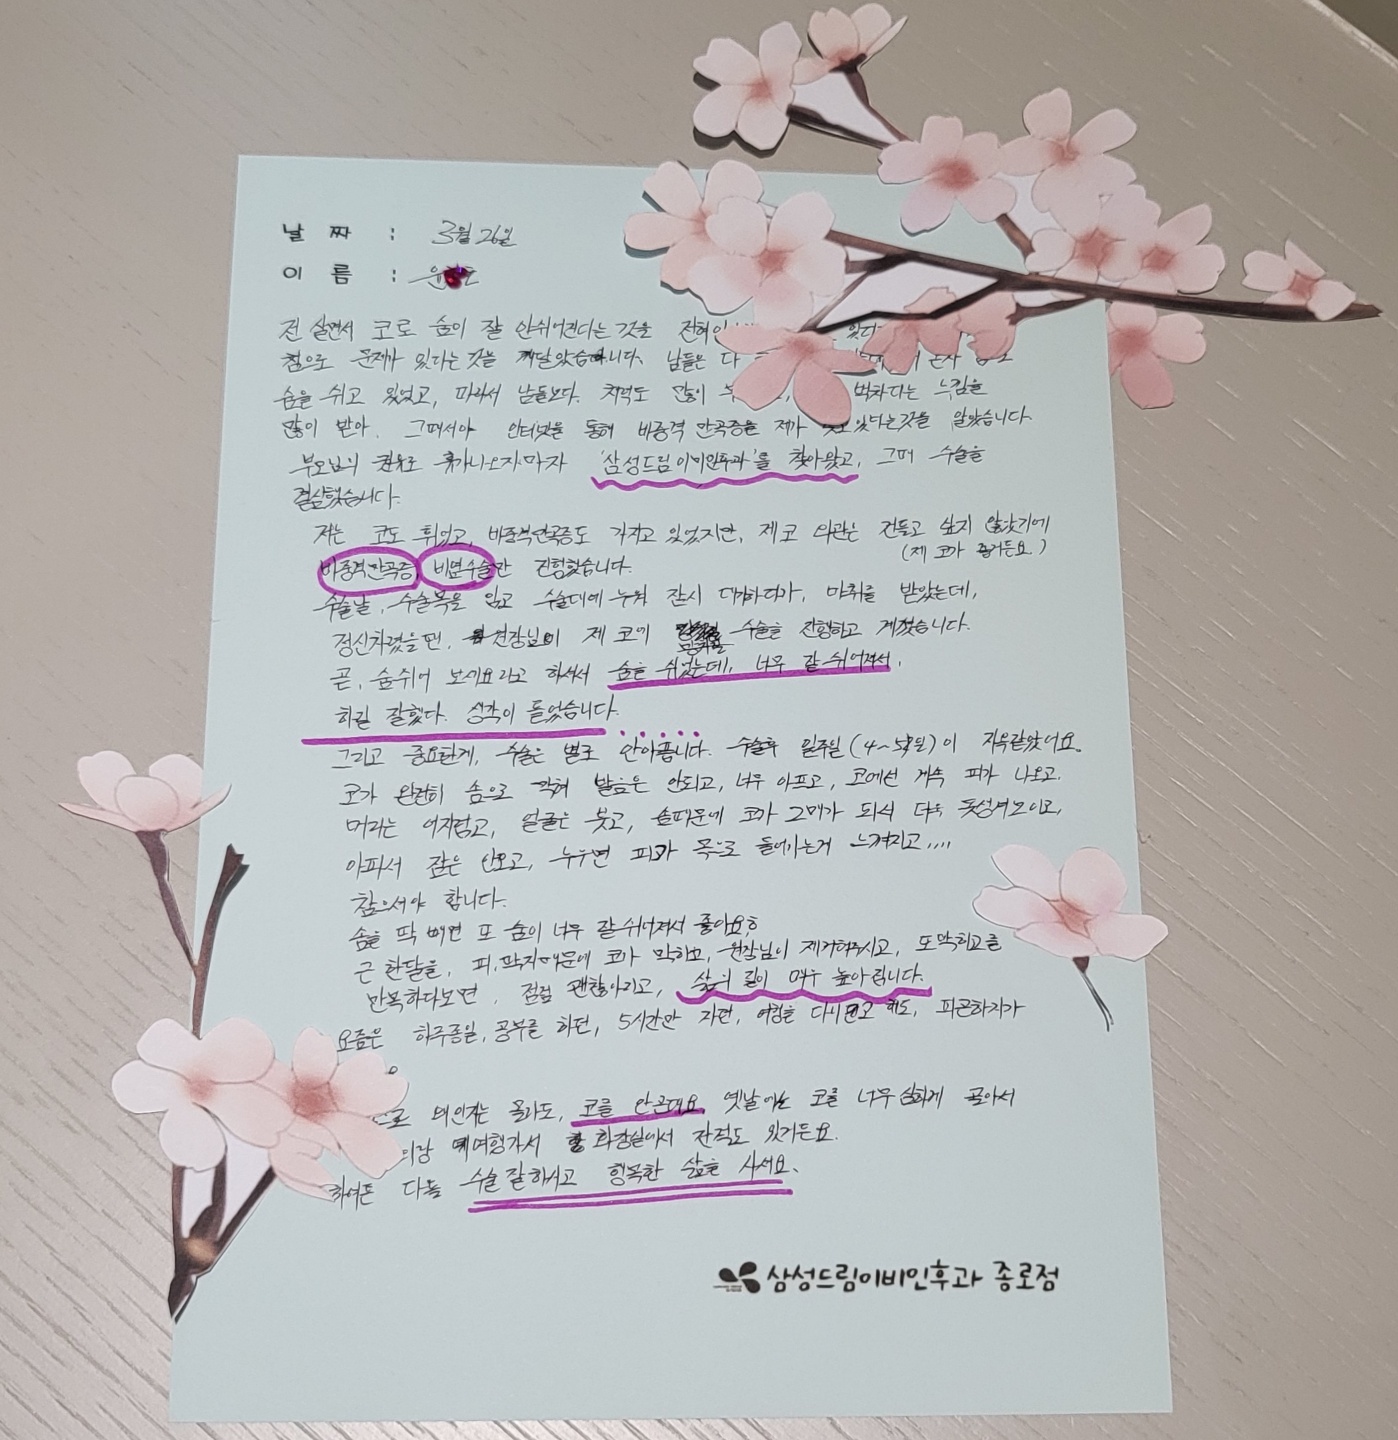 날 짜 : 3월 26일
이 름 : 윤
전 살면서 코로 숨이 잘 안쉬어진다는 것을 전혀
처음으로 문제가 있다는 것을 깨달았습니다. 남들은 다
숨을 쉬고 있었고, 따라서 남들보다. 체력도 많이 벅차다는 느낌을
많이 받아. 그때서야 인터넷을 통해 비중격 만곡증을 제가 있다는것을 알았습니다.
부모님의 권유로 휴가나오자마자 '삼성드림이비인후과'를 찾아왔고, 그때 수술을
결심했습니다.
저는 코도 휘었고, 비중격만곡증도 가지고 있었지만, 제 코 외관은 건들고 싶지 않았기에
(제 코가 좋거든요.)
비중격만곡증, 비염수술만 진행했습니다.
수술날, 수술복을 입고 수술대에 누워 잠시 대기하다가, 마취를 받았는데,
정신차렸을땐, 원장님이 제 코에 수술을 진행하고 계셨습니다.
곧, 숨쉬어 보세요라고 하셔서 숨을 쉬었는데, 너무 잘 쉬어져서,
하길 잘했다. 생각이 들었습니다.
그리고 중요한게, 수술은 별로 안아픕니다. 수술후 일주일(4~5일)이 지옥같았어요.
코가 완전히 솜으로 막혀 발음은 안되고, 너무 아프고, 코에선 계속 피가 나오고.
머리는 어지럽고, 얼굴은 붓고, 솜때문에 코가 2배가 되서 더욱 못생겨보이고,
아파서 잠은 안오고, 누우면 피가 목으로 들어가는게 느껴지고....
참으셔야 합니다.
솜을 딱 빼면 또 숨이 너무 잘 쉬어져서 좋아요ㅎ
근 한달을, 피, 딱지때문에 코가 막히고, 원장님이 제거해주시고, 또막히고를
반복하다보면, 점점 괜찮아지고, 삶의 질이 매우 높아집니다.
요즘은 하루종일, 공부를 하던, 5시간만 자던, 여행을 다시고 해도, 피곤하지가
코를 안곤대요. 옛날에는 코를 너무 심하게 골아서
화장실에서 잔적도 있거든요.
하여튼 다들 수술 잘하시고 행복한 삶을 사세요.
삼성드림이비인후과 종로점